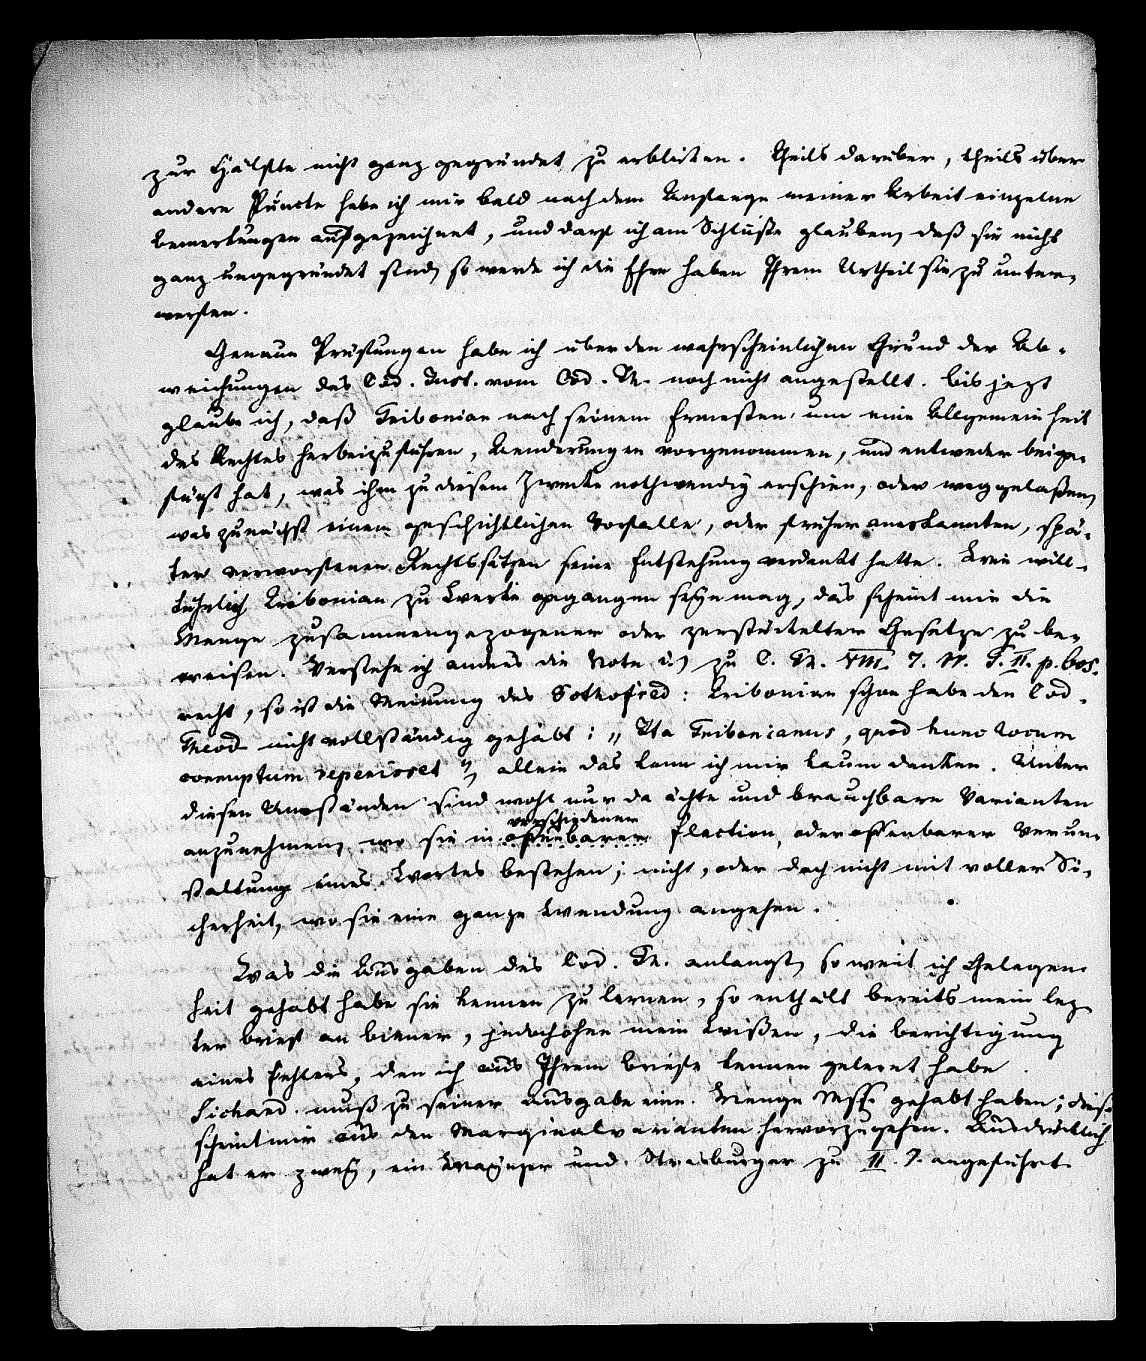 zur Hälfte nicht ganz gegründet zu erblicken. Theils darüber, theils über
andere Puncte habe ich mir bald nach dem Anfange meiner Arbeit einzelne
Bemerkungen aufgezeichnet, und darf ich am Schluße glauben, daß sie nicht
ganz ungegründet sind, so werde ich die Ehre haben Ihrem Urtheil sie zu unter-
werfen.
Genaue Prüfungen habe ich über den wahrscheinlichen Grund der Ab-
weichungen des Cod. Just. vom Cod. Th. noch nicht angestellt. bis jezt
glaube ich, daß Tribonian nach seinem Ermessen, um eine Allgemeinheit
des Rechtes herbeizuführen, Aenderungen vorgenommen, und entweder beige-
fügt hat, was ihm zu diesem Zwecke nothwendig erschien, oder weggelaßen,
was zunächst einem geschichtlichen Vorfalle, oder früher anerkannten, spä-
ter verworfenen Rechtssätzen seine Entstehung verdankt hatte. Wie will-
kührlich Tribonian zu Werke gegangen seyn mag, das scheint mir die
Menge zusammengezogener oder zerstückelter Gesetze zu be-
weisen. Verstehe ich anders die Note d.) zu C. Th. VIII. 7. 11. T. II. p. 608.
recht, so ist die Meinung des Gothofred: Tribonian schon habe den Cod.
Theod. nicht vollständig gehabt: „Ita Tribonianus, quod hunc locum
corruptum reperisset", allein das kann ich mir kaum denken. Unter
diesen Umständen sind wohl nur da ächte und brauchbare Varianten
anzunehmen, wo sie in offenbarer verschiedener Flection, oder offenbarer Verun-
staltung eines Wortes bestehen; nicht, oder doch nicht mit voller Si-
cherheit, wo sie eine ganze Wendung angehen.
Was die Ausgaben des Cod. Th. anlangt, so weit ich Gelegen-
heit gehabt habe sie kennen zu lernen, so enthält bereits mein lez-
ter brief an biener, jedoch ohne mein Wißen, die berichtigung
eines Fehlers, den ich aus Ihrem briefe kennen gelernt habe.
Sichard. muß zu seiner Ausgabe eine Menge Mss. gehabt haben; dies
scheint mir aus den Marginalvarianten hervorzugehen. Ausdrücklich
hat er zwey, ein Maynzer und Strasburger zu II. 7. angeführt.